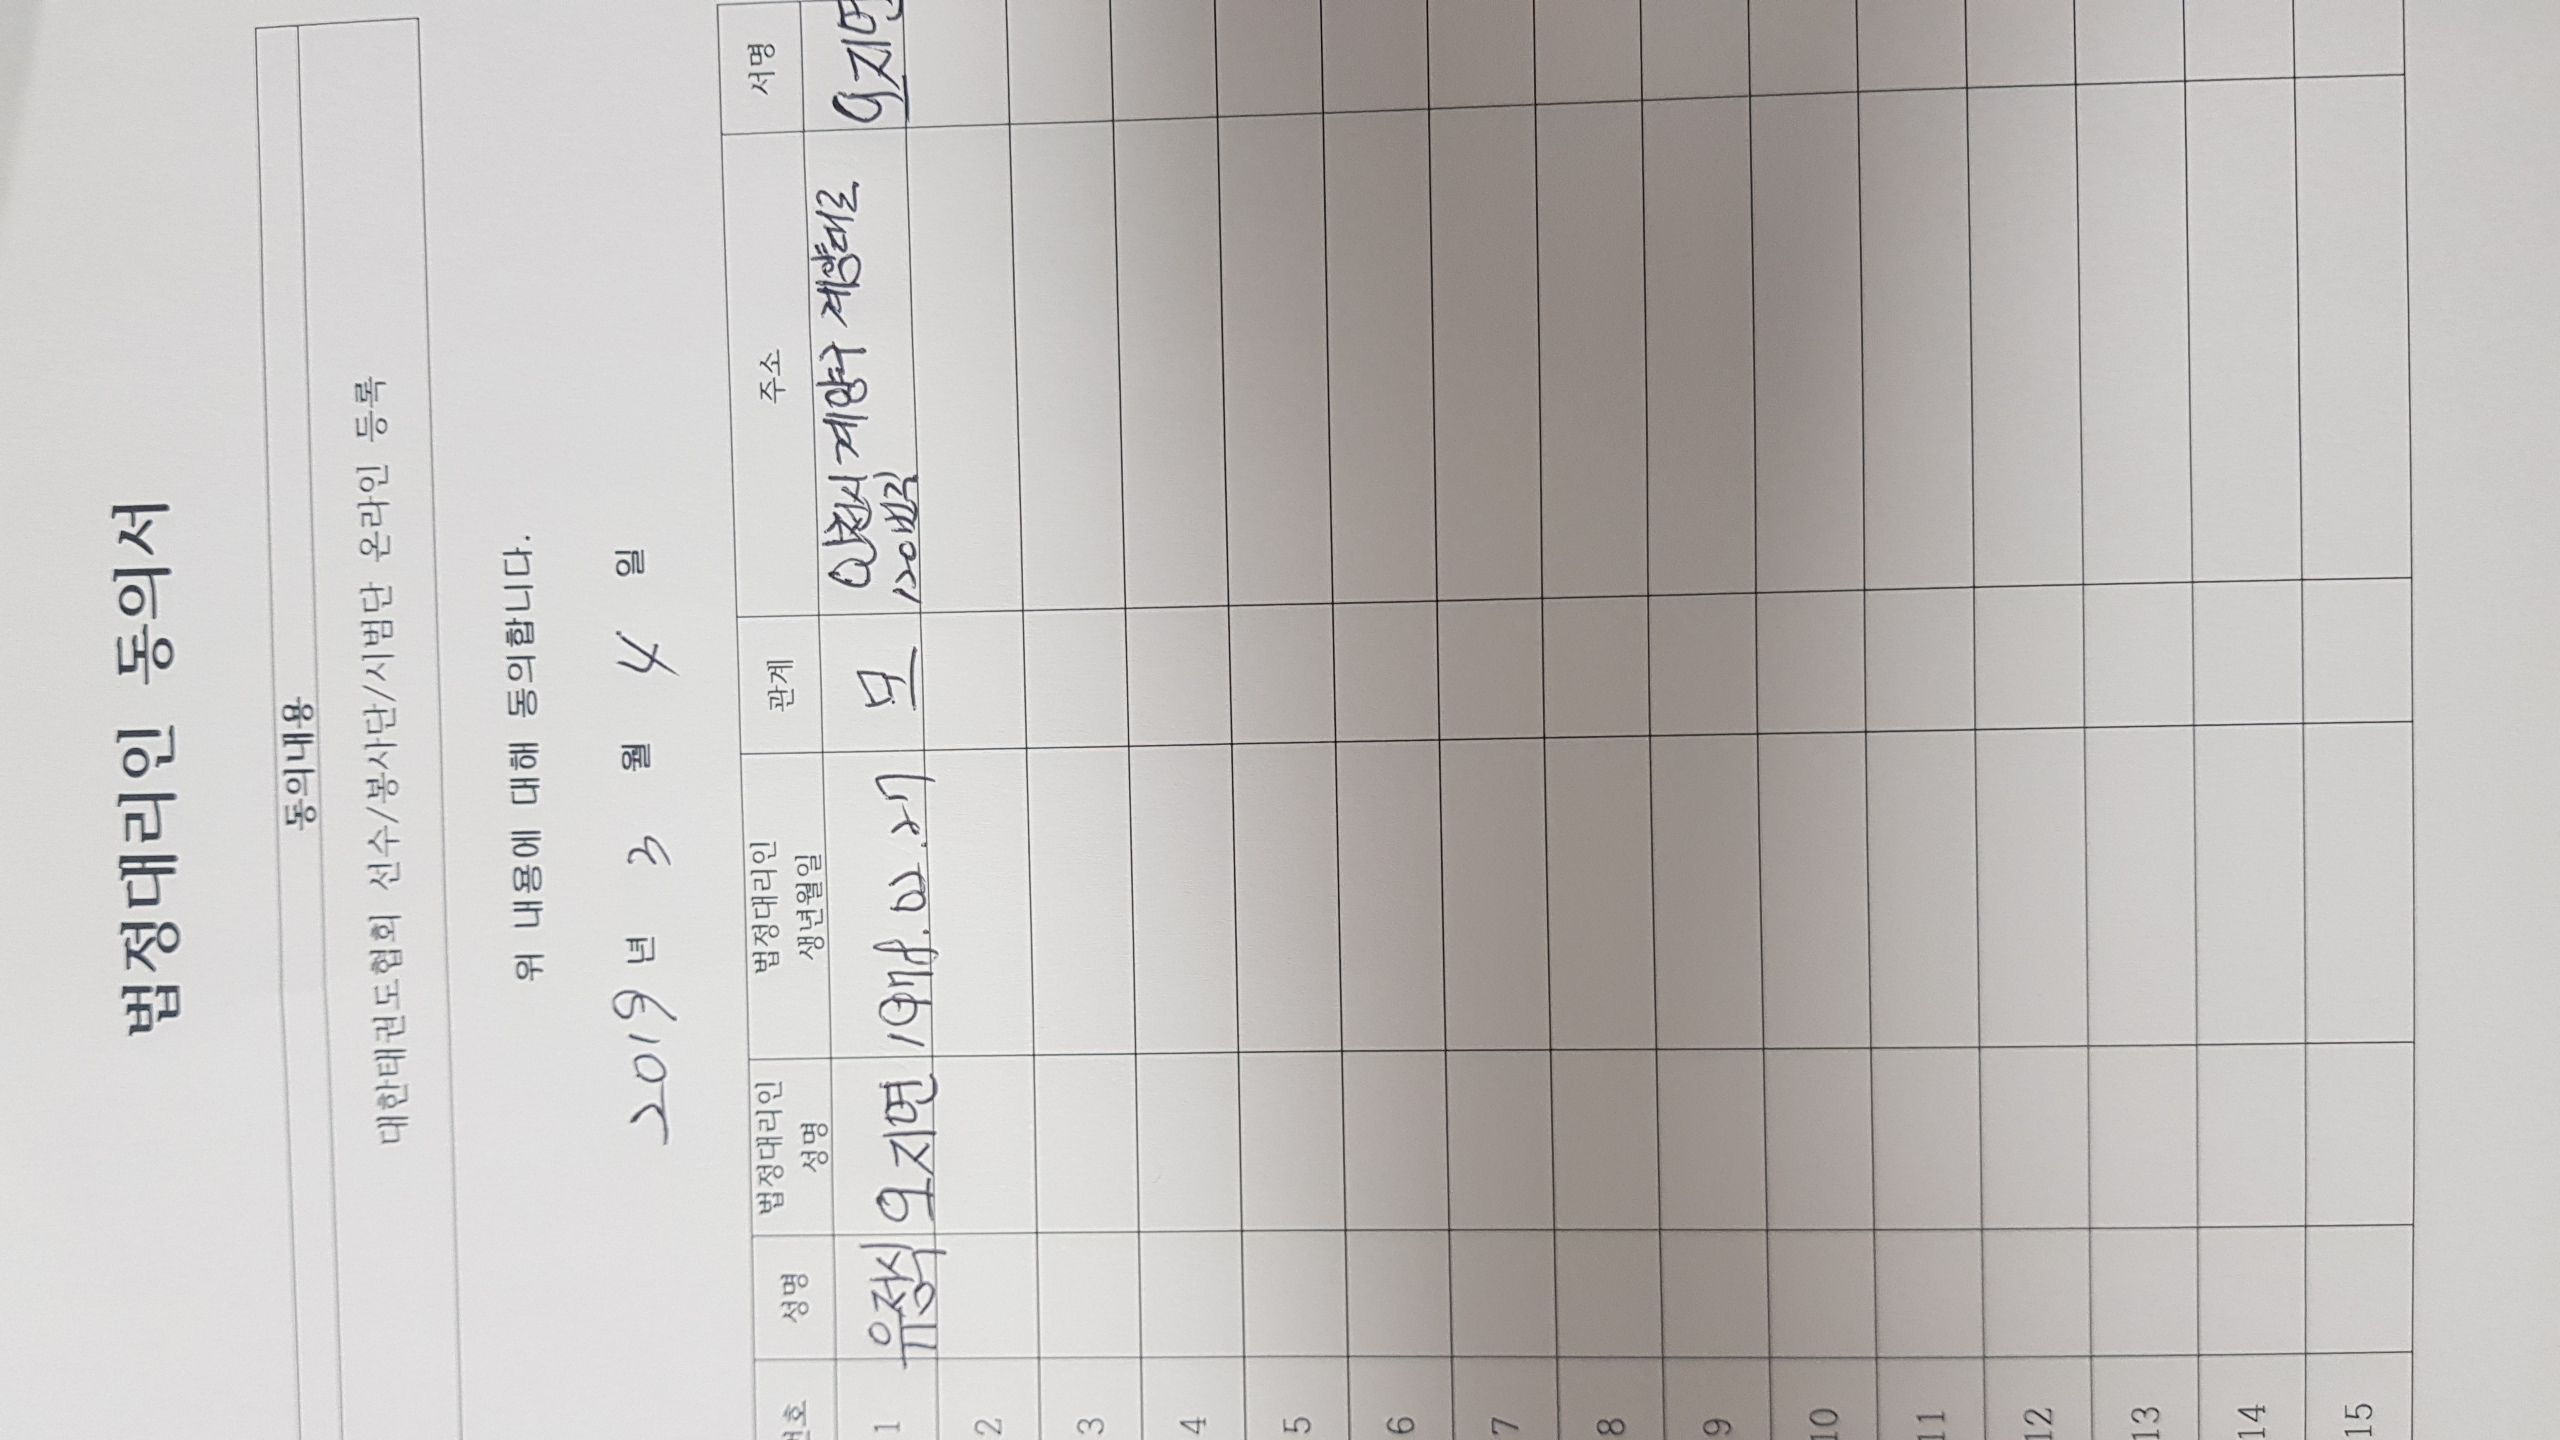 법정대리인 동의서
동의내용
대한태권도협회 선수/봉사단/시범단 온라인 등록
위 내용에 대해 동의합니다.
2019 년 3 월 4 일
번호 성명 법정대리인 성명 법정대리인 생년월일 관계 주소 서명
1 유정식 오지면 .02.27 모 인천시 계양구 계양대로
120번길
오지면
2
3
4
5
6
7
8
9
10
11
12
13
14
15